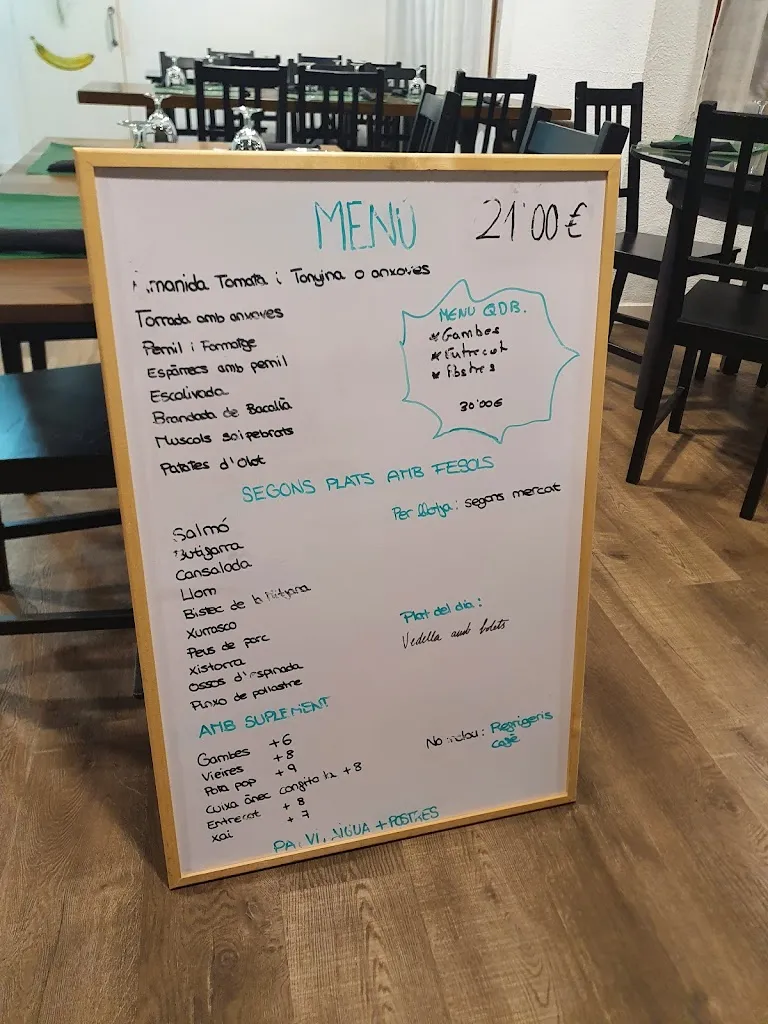 MENÚ 21'00 €
Tomata i Tonyina o anxoves
Torrada amb anxoves
Pernil i Formatge
Espàrrecs amb pernil
Escalivada
Brandada de Bacallà
Muscols saipebrats
Patates d'Olot
MENU QDB.
* Gambes
* Entrecot
* Postres
30'00€
SEGONS PLATS AMB FESOLS
Salmó
Butifarra
Cansalada
Llom
Bistec de la Mitjana
Xurrasco
Peus de porc
Xistorra
Ossos d'espinada
Pinxo de pollastre
Per llotja: segons mercat
Plat del dia:
Vedella amb bolets
AMB SUPLEMENT
Gambes +6
Vieires +8
Pota pop +9
Cuixa ànec confitada +8
Entrecot +8
Xai +7
No inclou: Refrigeris
cafè
PA, VI, AIGUA + POSTRES